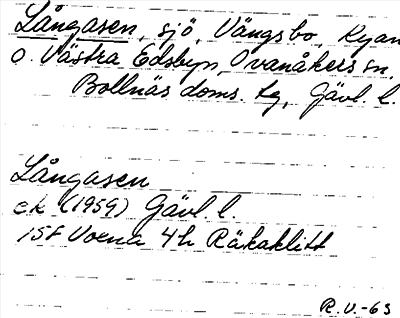 Långasen, sjö, Vängsbo, Ryan
o. Västra Edsbyn, Ovanåkers sn,
Bollnäs doms. tg, Gävl. l.
Långasen
ek (1959) Gävl. l.
15F Voxna 4h Räkaklitt
R.V.-63